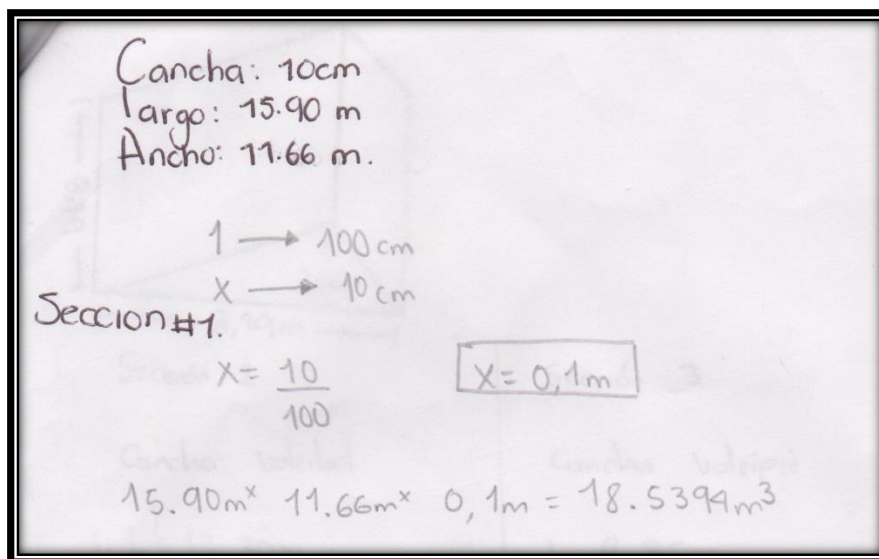 Cancha: 10cm
largo: 15.90 m
Ancho: 11.66 m.
1 → 100 cm
x → 10 cm
Seccion #1.
x = 10/100 x = 0,1m
15.90m x 11.66m x 0,1m = 18.5394m³